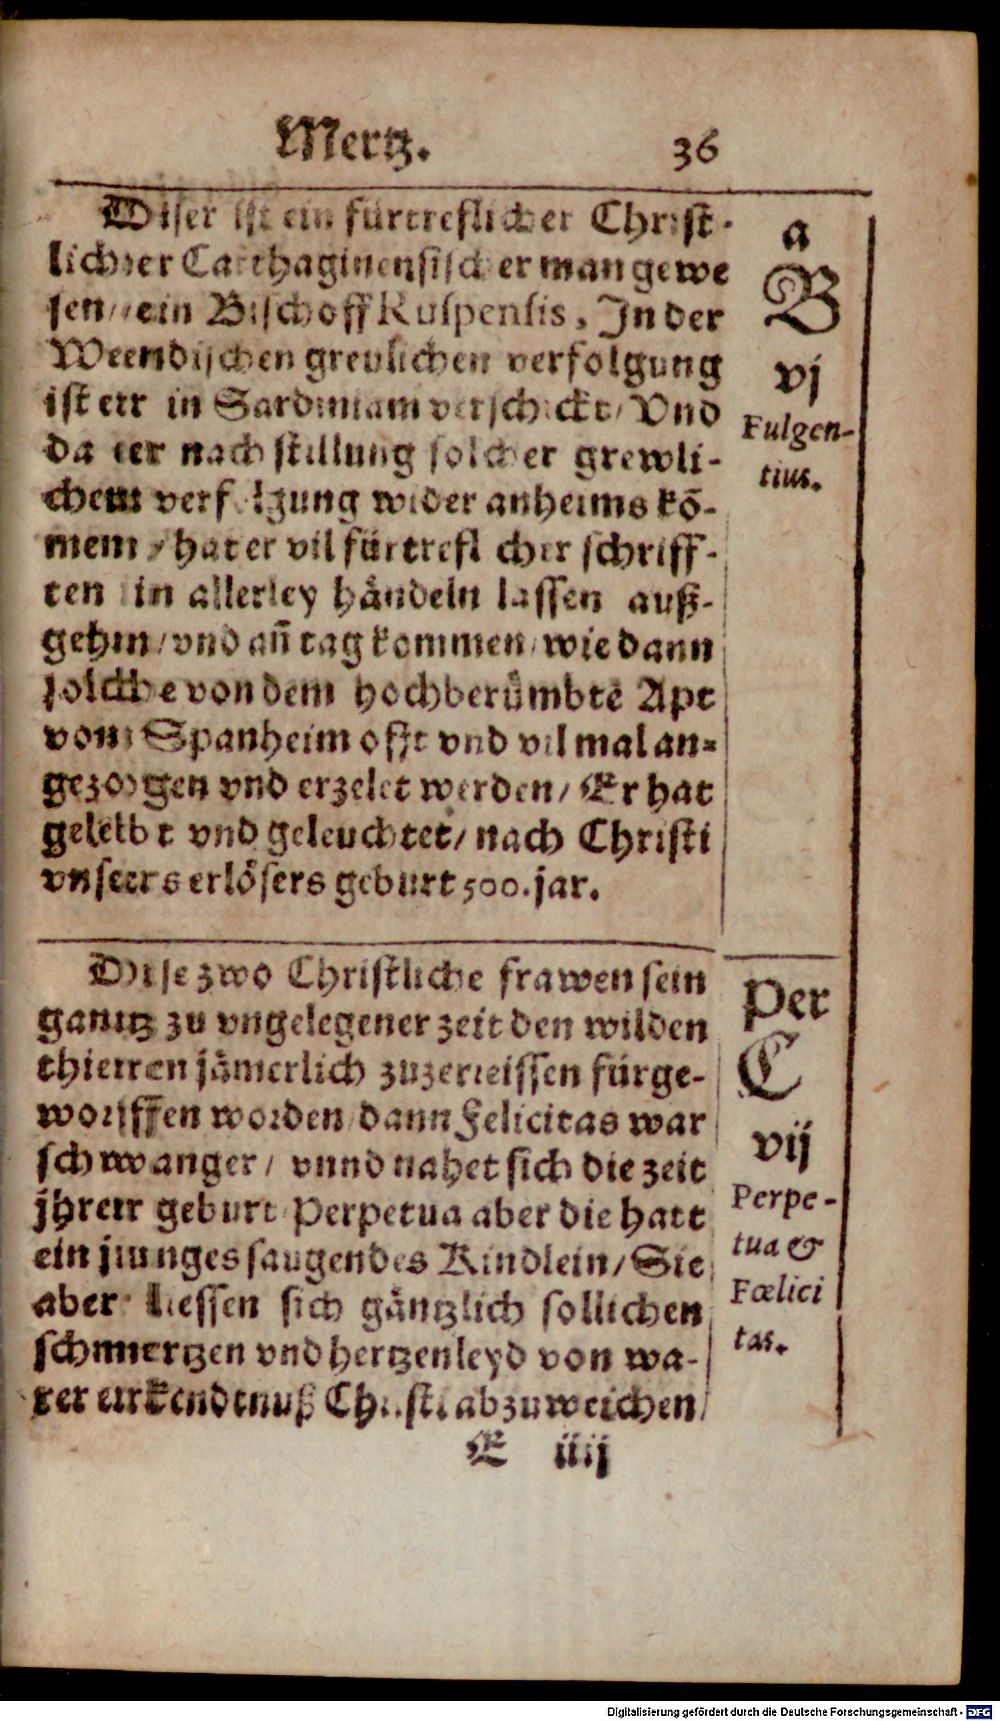 Mertz. 36
Diser ist ein fürtreflicher Christ-
licher Carthaginensischer man gewe
sen / ein Bischoff Ruspensis, In der
Wendischen grevlichen verfolgung
ist er in Sardiniam verschickt / Vnd
da er nach stillung solcher grewli-
chen verfolgung wider anheims kō-
men / hat er vil fürtreflicher schriff-
ten in allerley håndeln lassen auß-
gehn / vnd an tag kommen / wie dann
solche von dem hochberůmbtē Apt
von Spanheim offt vnd vil mal an-
gezogen vnd erzelet werden / Er hat
gelebt vnd geleuchtet / nach Christi
vnsers erlösers geburt 500. jar.
a
B
vj
Fulgen-
tius.
Dise zwo Christliche frawen sein
gantz zu vngelegener zeit den wilden
thieren jåmerlich zuzerreissen fürge-
worffen worden / dann Felicitas war
schwanger / vnnd nahet sich die zeit
jhrer geburt / Perpetua aber die hatt
ein junges saugendes Kindlein / Sie
aber liessen sich gåntzlich sollichen
schmertzen vnd hertzenleyd von wa-
rer erkendtnuß Christi abzuweichen /
Per
C
vij
Perpe-
tua &
Fœlici
tas.
E iiij
Digitalisierung gefördert durch die Deutsche Forschungsgemeinschaft - DFG